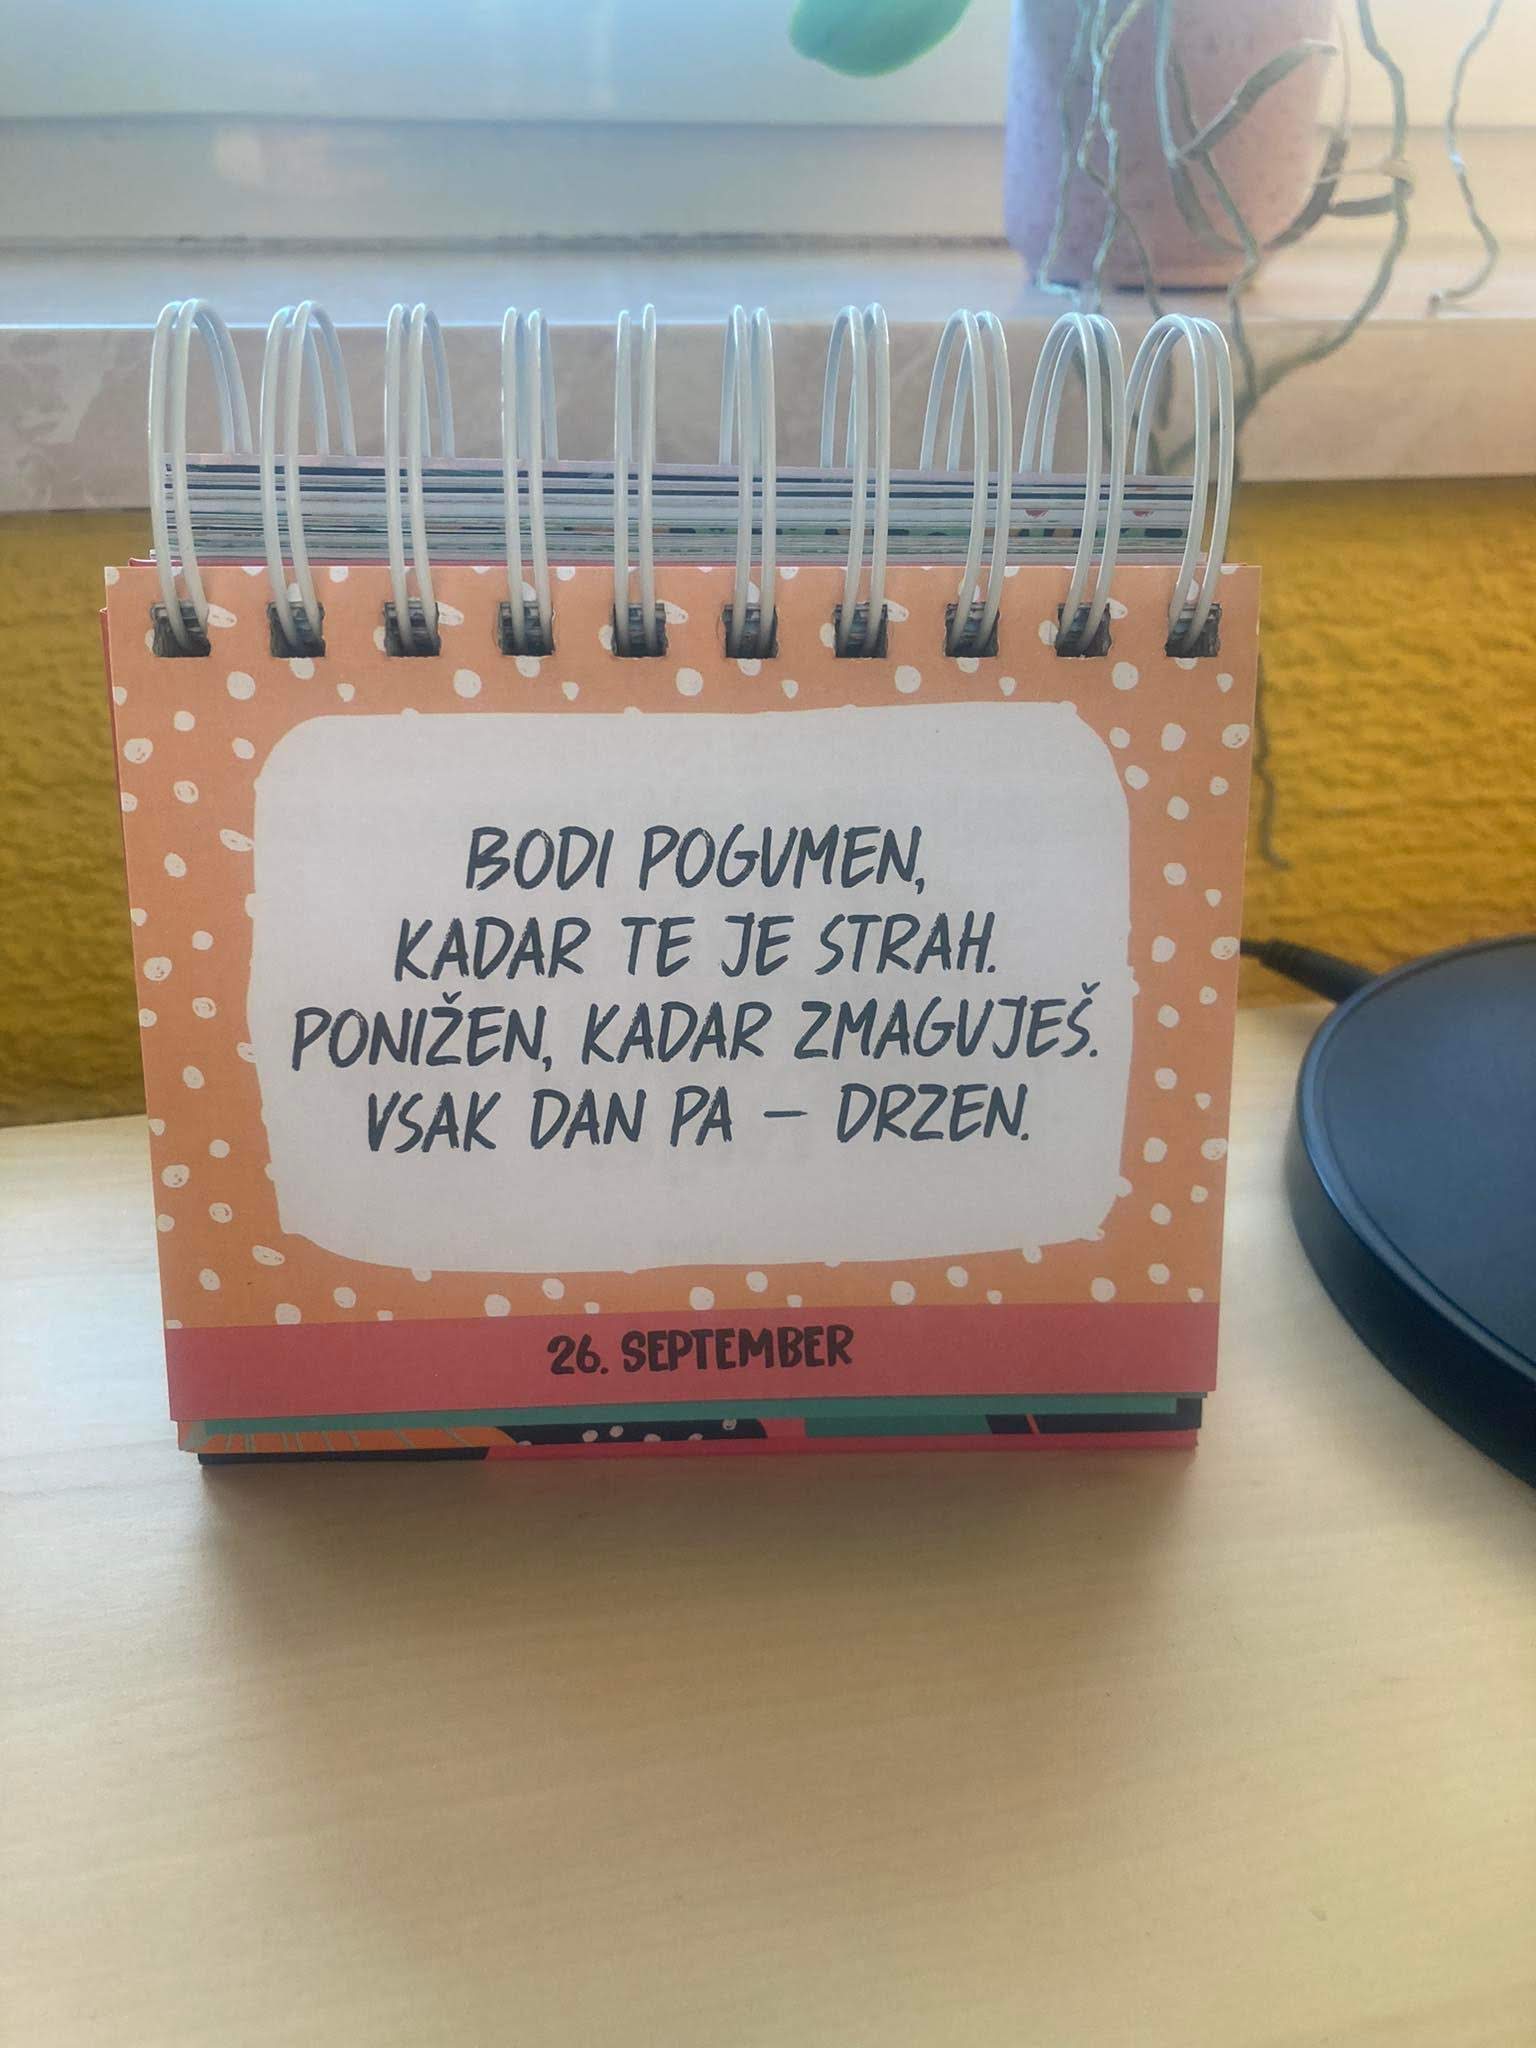 BODI POGUMEN,
KADAR TE JE STRAH.
PONIŽEN, KADAR ZMAGUJEŠ.
VSAK DAN PA – DRZEN.
26. SEPTEMBER